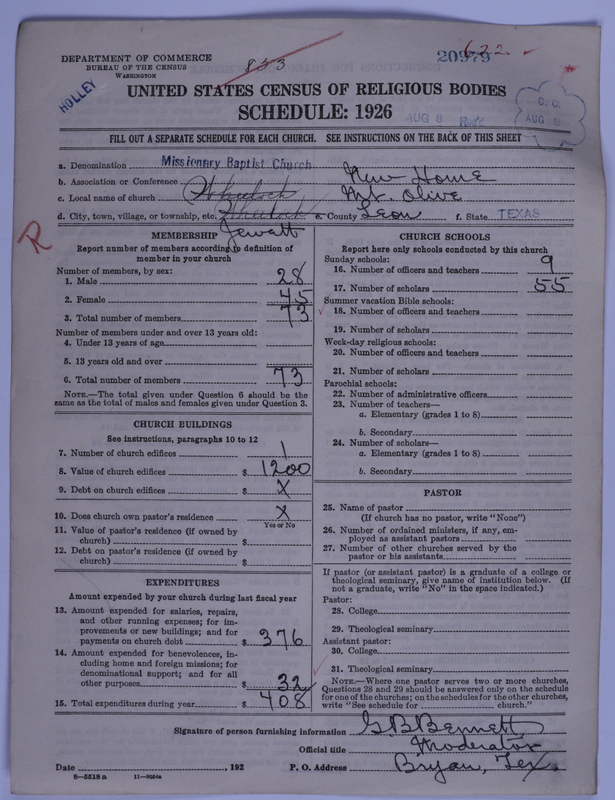 DEPARTMENT OF COMMERCE
BUREAU OF THE CENSUS
WASHINGTON
833
20979
622
HOLLEY
UNITED STATES CENSUS OF RELIGIOUS BODIES
SCHEDULE: 1926
AUG 8
AUG 8
FILL OUT A SEPARATE SCHEDULE FOR EACH CHURCH. SEE INSTRUCTIONS ON THE BACK OF THIS SHEET
a. Denomination Missionary Baptist Church
b. Association or Conference New Home
c. Local name of church Wheelock Mt. Olive
d. City, town, village, or township, etc. Wheelock e. County Leon f. State TEXAS
Jewett
R
MEMBERSHIP
Report number of members according to definition of
member in your church
Number of members, by sex:
1. Male 28
2. Female 45
3. Total number of members 73
Number of members under and over 13 years old:
4. Under 13 years of age
5. 13 years old and over
6. Total number of members 73
NOTE.—The total given under Question 6 should be
same as the total of males and females given under Question 3.
CHURCH BUILDINGS
See instructions, paragraphs 10 to 12
7. Number of church edifices 1
8. Value of church edifices $ 1200
9. Debt on church edifices $ X
10. Does church own pastor's residence X
Yes or No
11. Value of pastor's residence (if owned by
church) $
12. Debt on pastor's residence (if owned by
church) $
EXPENDITURES
Amount expended by your church during last fiscal year
13. Amount expended for salaries, repairs,
and other running expenses; for im-
provements or new buildings; and for
payments on church debt $ 376
14. Amount expended for benevolences, in-
cluding home and foreign missions; for
denominational support; and for all
other purposes $ 32
15. Total expenditures during year $ 408
CHURCH SCHOOLS
Report here only schools conducted by this church
Sunday schools:
16. Number of officers and teachers 9
17. Number of scholars 55
Summer vacation Bible schools:
18. Number of officers and teachers
19. Number of scholars
Week-day religious schools:
20. Number of officers and teachers
21. Number of scholars
Parochial schools:
22. Number of administrative officers
23. Number of teachers—
a. Elementary (grades 1 to 8)
b. Secondary
24. Number of scholars—
a. Elementary (grades 1 to 8)
b. Secondary
PASTOR
25. Name of pastor
(If church has no pastor, write "None")
26. Number of ordained ministers, if any, em-
ployed as assistant pastors
27. Number of other churches served by the
pastor or his assistants
If pastor (or assistant pastor) is a graduate of a college or
theological seminary, give name of institution below. (If
not a graduate, write "No" in the space indicated.)
Pastor:
28. College
29. Theological seminary
Assistant pastor:
30. College
31. Theological seminary
NOTE.—Where one pastor serves two or more churches,
Questions 28 and 29 should be answered only on the schedule
for one of the churches; on the schedules for the other churches,
write "See schedule for church."
Signature of person furnishing information G B Bennett
Official title Moderator
Date , 192 P. O. Address Bryan, Tex.
8—5518a 11—9004a